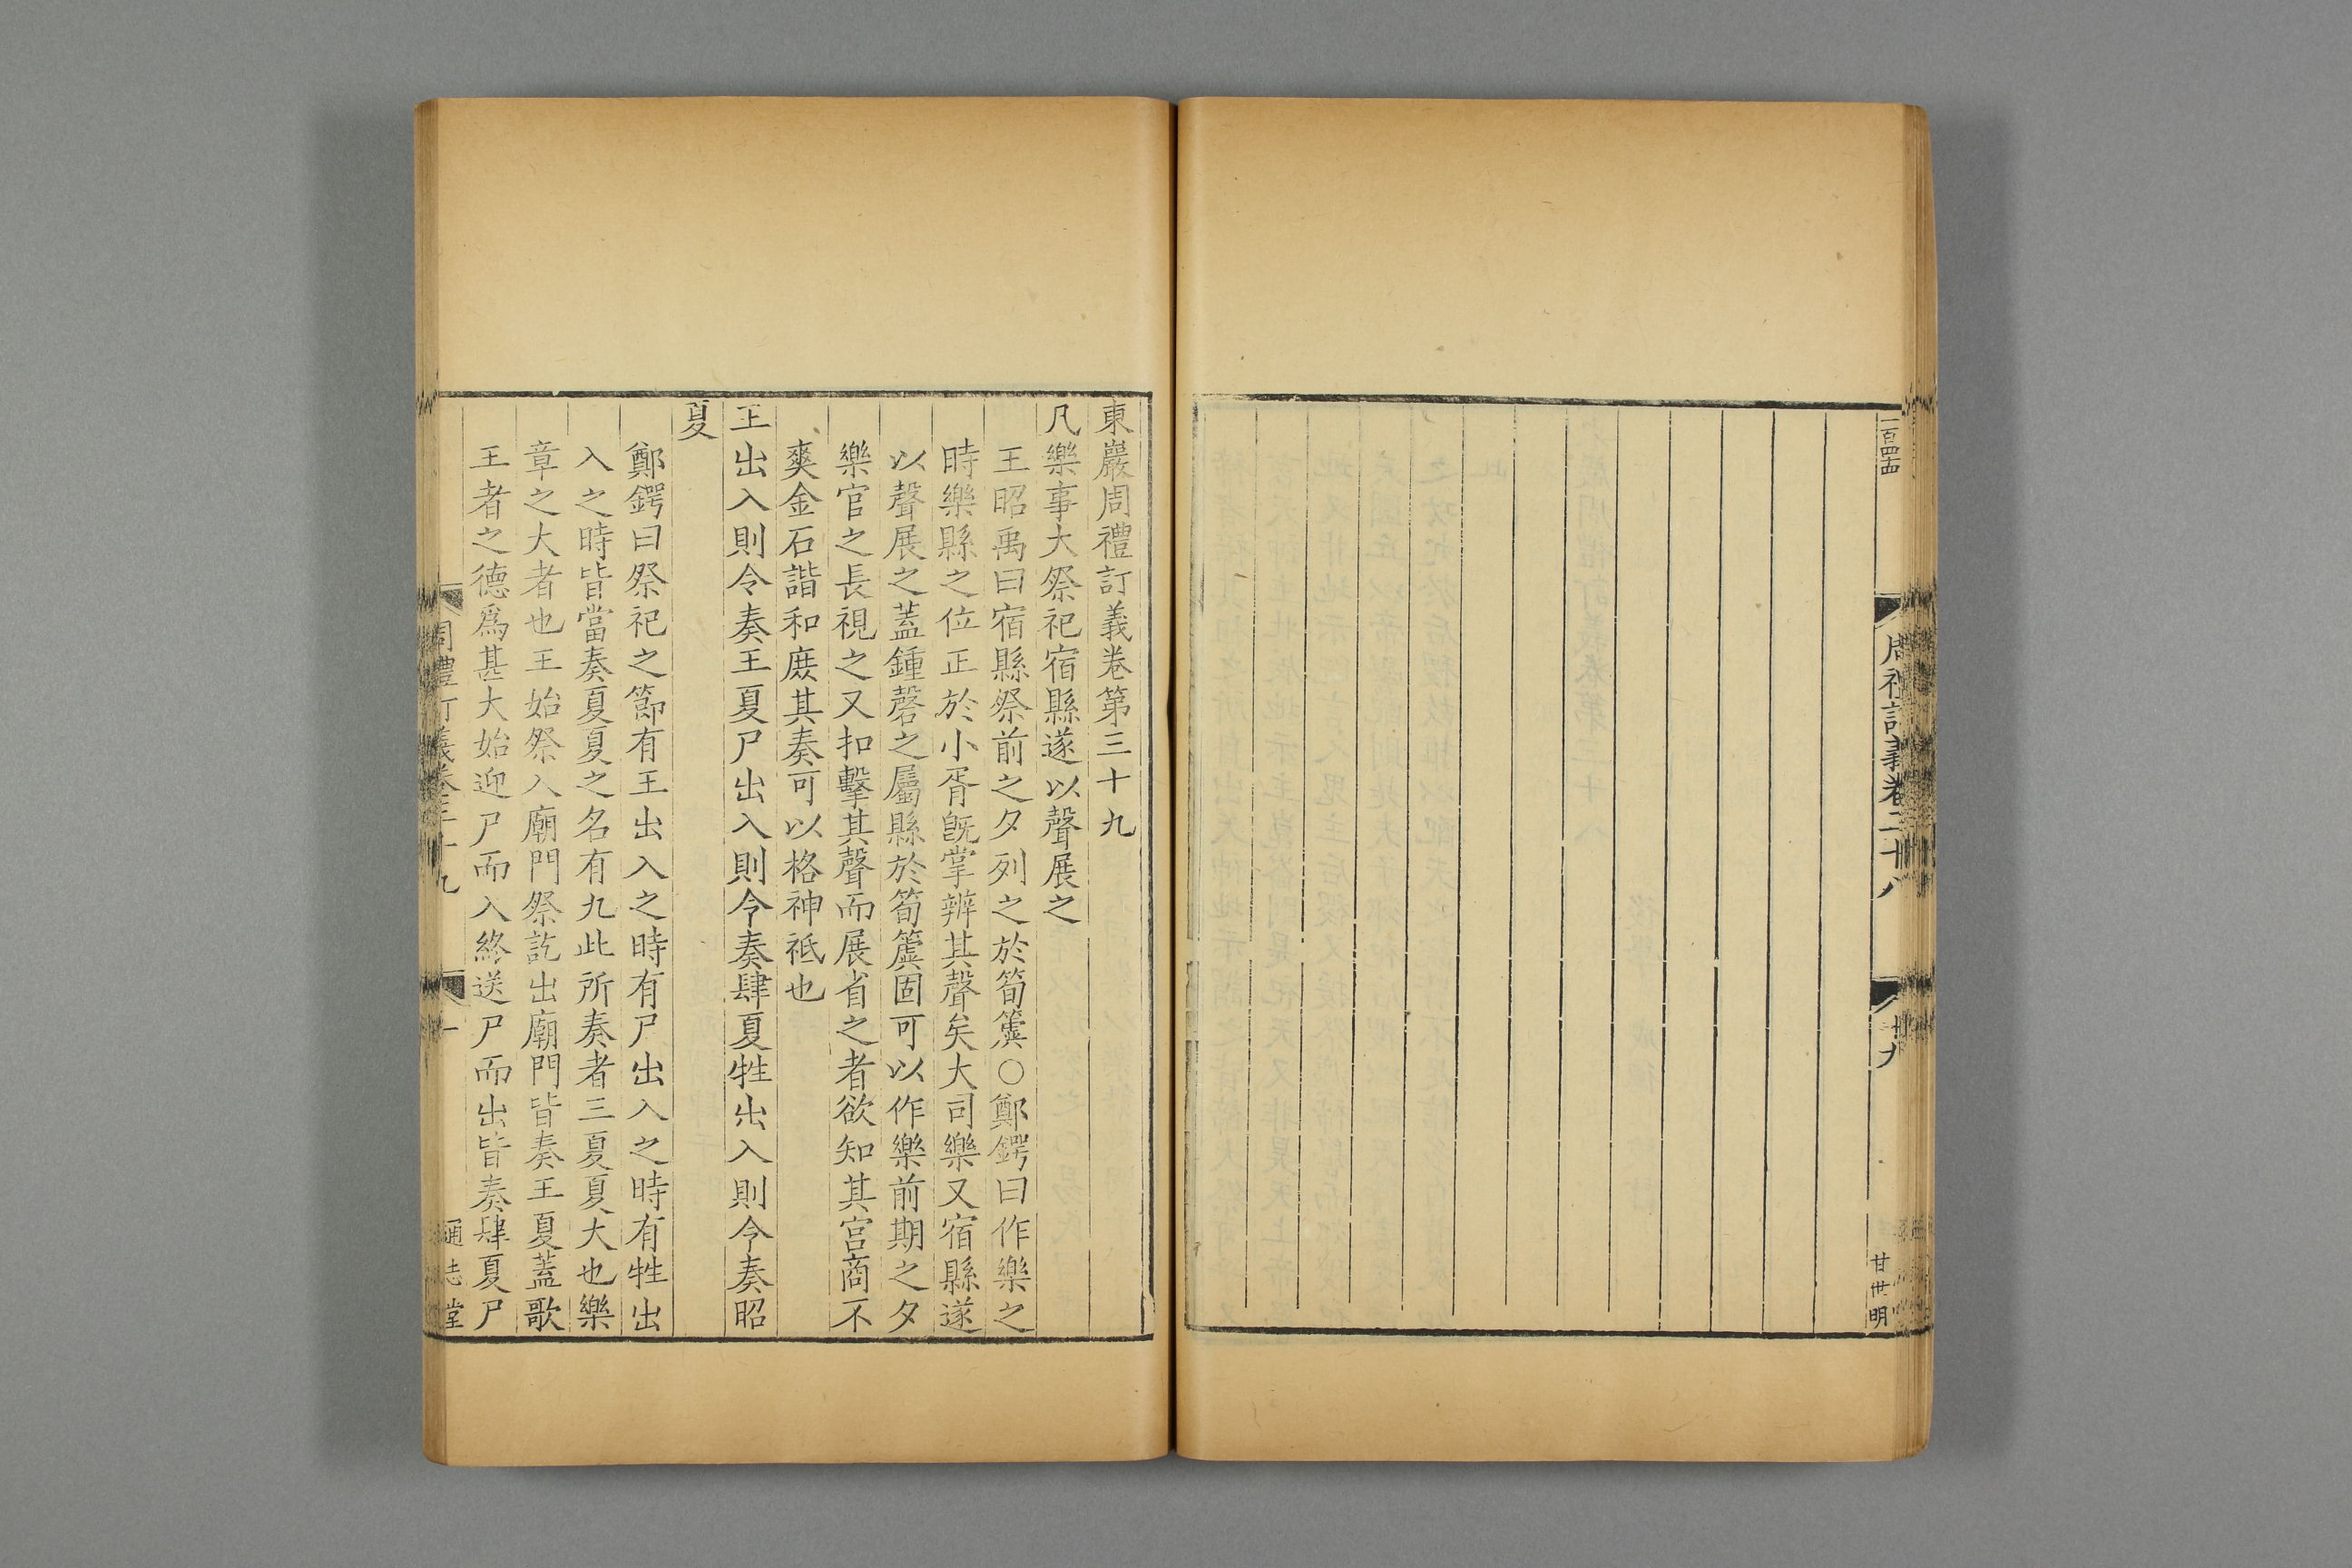 一百四十四
周禮訂義卷三十八
廿九
甘世明
東巖周禮訂義卷第三十九
凡樂事大祭祀宿縣遂以聲展之
王昭禹曰宿縣祭前之夕列之於筍簴○鄭鍔曰作樂之
時樂縣之位正於小胥旣掌辨其聲矣大司樂又宿縣遂
以聲展之蓋鍾磬之屬縣於筍簴固可以作樂前期之夕
樂官之長視之又扣擊其聲而展省之者欲知其宮商不
爽金石諧和庶其奏可以格神祇也
王出入則令奏王夏尸出入則令奏肆夏牲出入則令奏昭
夏
鄭鍔曰祭祀之節有王出入之時有尸出入之時有牲出
入之時皆當奏夏夏之名有九此所奏者三夏夏大也樂
章之大者也王始祭入廟門祭訖出廟門皆奏王夏蓋歌
王者之德爲甚大始迎尸而入終送尸而出皆奏肆夏尸
周禮訂義卷三十九
一
通志堂